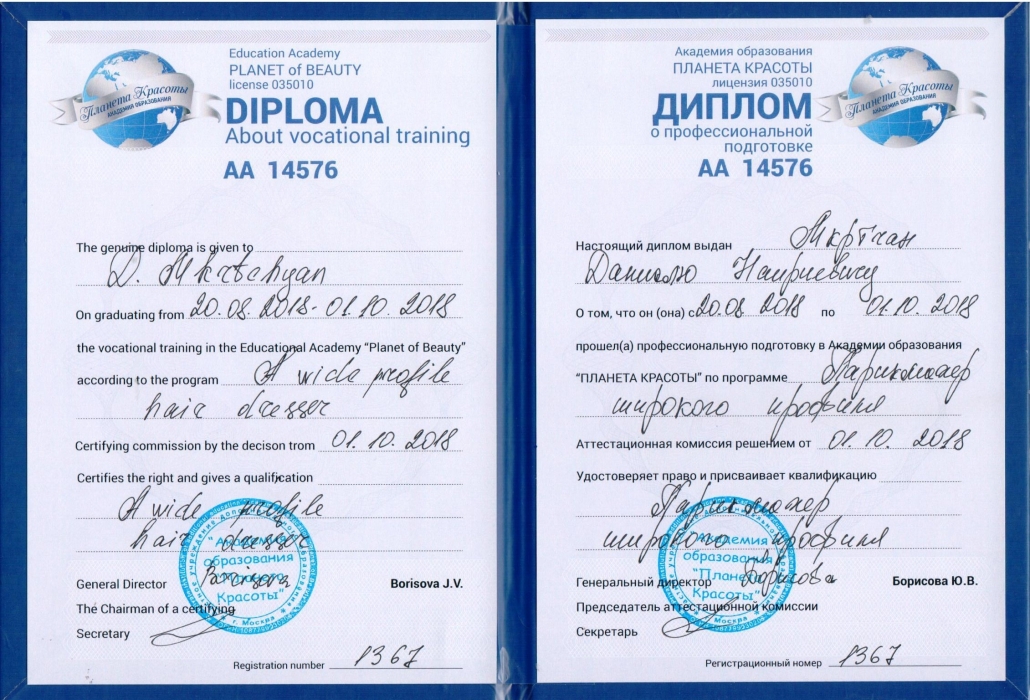 Планета Красоты
АКАДЕМИЯ ОБРАЗОВАНИЯ
Education Academy
PLANET of BEAUTY
license 035010
DIPLOMA
About vocational training
AA 14576
The genuine diploma is given to
D. Mkrtchyan
On graduating from 20.08.2018-01.10.2018
the vocational training in the Educational Academy “Planet of Beauty”
according to the program A wide profile
hair dresser
Certifying commission by the decison trom 01.10.2018
Certifies the right and gives a qualification
A wide profile
hair dresser
"Академия
образования
"Планета
Красоты"
г. Москва
General Director Borisova J.V.
The Chairman of a certifying
Secretary
Registration number 1367
Академия образования
ПЛАНЕТА КРАСОТЫ
лицензия 035010
ДИПЛОМ
о профессиональной
подготовке
АА 14576
Планета Красоты
АКАДЕМИЯ ОБРАЗОВАНИЯ
Настоящий диплом выдан Мкртчян
Даниэлю Наириевичу
О том, что он (она) с 20.08 2018 по 01.10.2018
прошел(а) профессиональную подготовку в Академии образования
“ПЛАНЕТА КРАСОТЫ” по программе Парикмахер
широкого профиля
Аттестационная комиссия решением от 01.10.2018
Удостоверяет право и присваивает квалификацию
Парикмахер
широкого профиля
"Академия
образования
"Планета
Красоты"
г. Москва
Генеральный директор Борисова Борисова Ю.В.
Председатель аттестационной комиссии
Секретарь
Регистрационный номер 1367